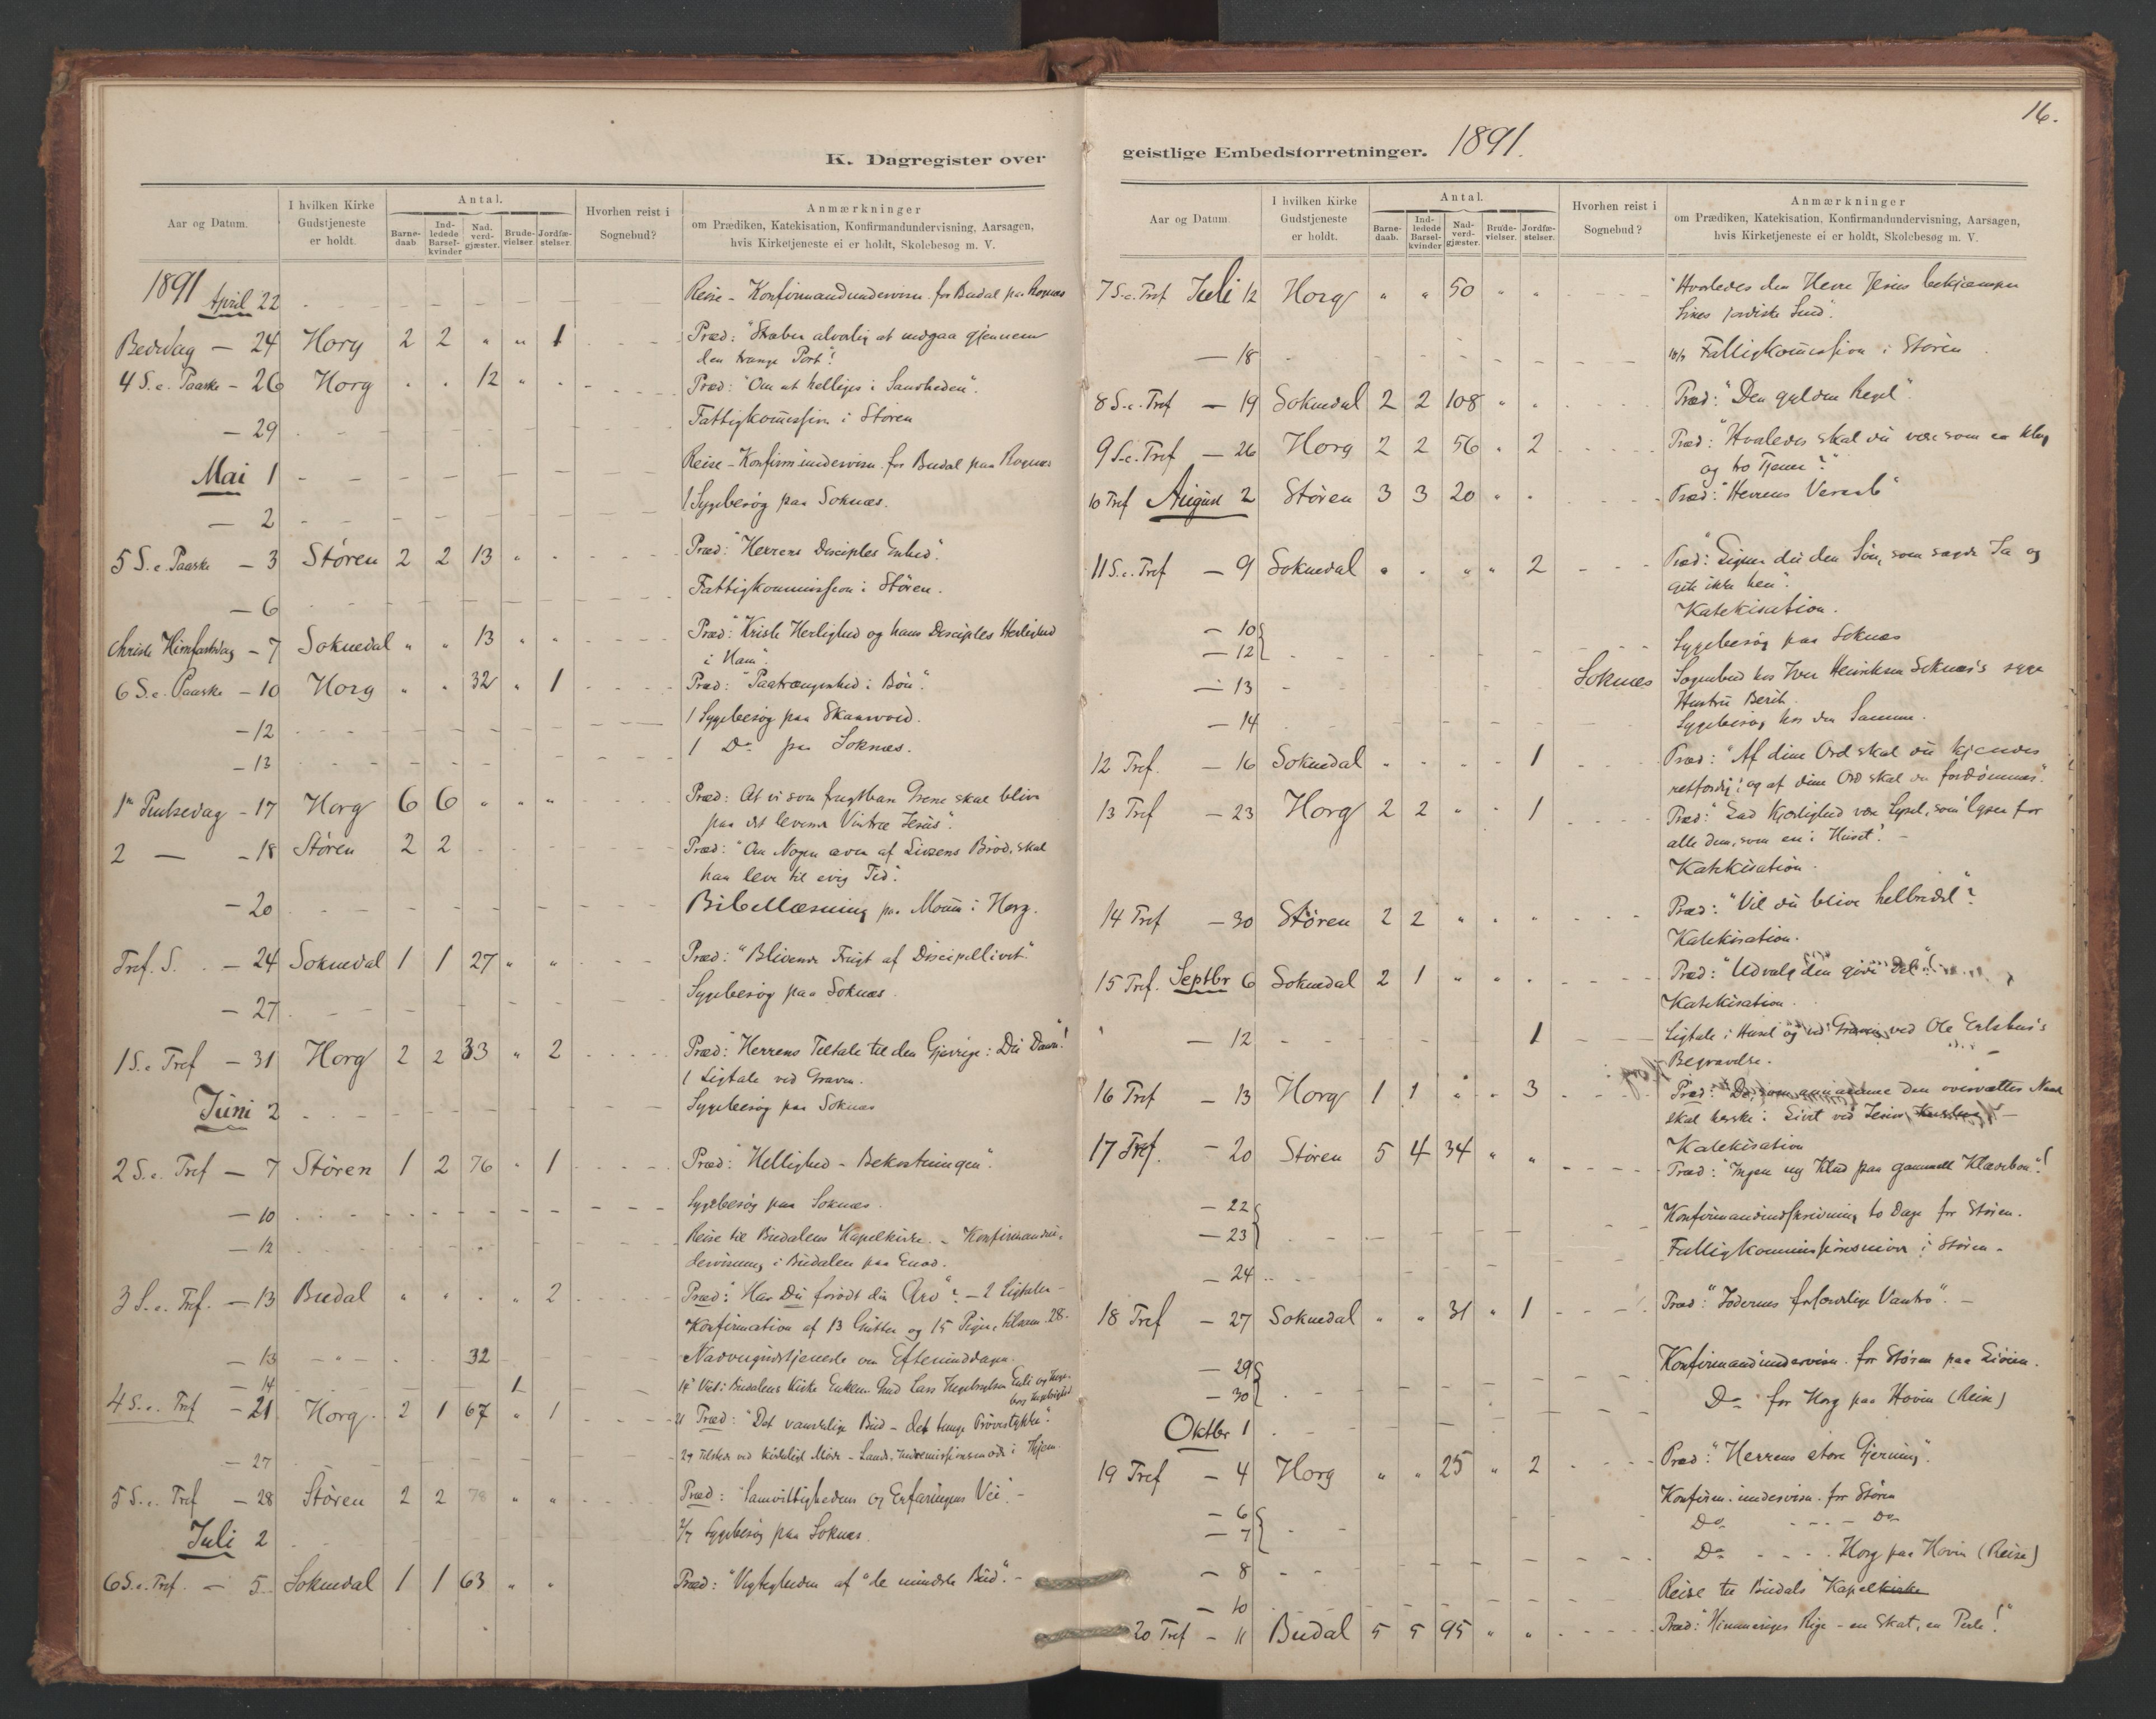 K. Dagregister over
Aar og Datum.
I hvilken Kirke Gudstjeneste er holdt.
Antal.
Barne-daab
Ind-ledede Barsel-kvinder
Nad.verd-gjæster.
Brude-vielser.
Jordfæ-stelser.
Hvorhen reist i Sognebud?
Anmærkninger
om Prædiken, Katekisation, Konfirmandundervisning, Aarsagen,
hvis Kirketjeneste ei er holdt, Skolebesøg m. V.
1891
April 22 Reise - Konfirmandundervisn. for Budal paa Rognes
Bededag — 24 Horg 2 2 " " 1 Præd: "Stræber alvorlig at indgaa gjennem
den trange Port"!
4 S. e. Paaske - 26 Horg " " 12 " " Præd: "Om at helliges i Sandheden".
— 29 Fattigkommission i Støren
Mai 1 Reise - Konfirm.undervisn. for Budal paa Rognes
— 2 1 Sygebesøg paa Soknes.
5 S. e. Paaske — 3 Støren 2 2 13 " " Præd: "Herrens Disciples Enhed".
— 6 Fattigkommission i Støren.
Christi Himfartsdag - 7 Soknedal " " 13 " " Præd: "Kristi Herlighed og hans Disciples Herlighed
i Ham".
6 S. e. Paaske - 10 Horg " " 32 " 1 Præd: "Paatrængenhed i Bøn".
- 12 1 Sygebesøg paa
- 13 1 Do paa Soknes.
1ste Pintsedag - 17 Horg 6 6 " " " Præd: At vi som frugtbare Grene skal blive
paa det levende Vintræ Jesus".
2 — - 18 Støren 2 2 Præd: "Om Nogen æder af Livsens Brød, skal
han leve til evig Tid".
- 20 Bibellæsning paa i Horg.
Tref. S. — 24 Soknedal 1 1 27 " " Præd: "Blivende Frugt af Discipellivet".
— 27 Sygebesøg paa Soknes.
1 S. e. Tref — 31 Horg 2 2 33 " 2 Præd: "Herrens Tiltale til den Gjerrige: Du Daare"!
1 Ligtale ved Graven.
Juni 2 Sygebesøg paa Soknes
2 S. e. Tref — 7 Støren 1 2 76 " 1 Præd: "Hellighed - Bekostningen".
— 10 Sygebesøg paa Soknes.
— 12 Reise til Budalens Kapelkirke. - Konfirmandun-
dervisning i Budalen paa Enod.
3 S. e. Tref. — 13 Budal " " " " 2 Præd: "Har Du forødt din Arv"? - 2 Ligtaler -
Konfirmation af 13 Gutter og 15 Piger, tilsam. 28.
— 13 32 Nadvergudstjeneste om Eftermiddagen.
— 14 1 14 Viet i Budalens Kirke Enkem. Lars
4 S. e. Tref - 21 Horg. 2 1 67 " 1 21 Præd: "Det vanskelige Bud - det tunge Prøvestykke".
— 27 27 Tilstede ved Kirkeligt Møde -
5 S. e. Tref — 28 Støren 2 2 78 " " Præd: "Samvittighedens og Erfaringens Vei". -
Juli 2 2/7 Sygebesøg paa Soknes.
6 S. e. Tref. — 5 Soknedal 1 1 63 " " Præd: "Vigtigheden af "de mindste Bud". -
geistlige Embedsforretninger. 1891.
16.
Aar og Datum.
I hvilken Kirke Gudstjeneste er holdt.
Antal.
Barne-daab.
Ind-ledede Barsel-kvinder
Nad-verd-gjæster.
Brude-vielser.
Jordfæ-stelser.
Hvorhen reist i Sognebud?
Anmærkninger
om Prædiken, Katekisation, Konfirmandundervisning, Aarsagen,
hvis Kirketjeneste ei er holdt, Skolebesøg m. V.
7 S. e. Tref Juli 12 Horg " " 50 " " "Hvorledes den Herre Jesus bekjæmper
Sines jordiske Sind".
— 18 18/7 Fattigkommission i Støren
8 S. e. Tref — 19 Soknedal 2 2 108 " " Præd: "Den gyldne Regel".
9 S. e. Tref — 26 Horg 2 2 56 " 2 Præd: "Hvorledes skal du være som en klog
og tro Tjener"?
10 Tref August 2 Støren 3 3 20 " " Præd: "Herrens
11 S. e. Tref — 9 Soknedal " " " " 2 Præd: "Ligner du den Søn, som sagde Ja og
gik ikke hen".
Katekisation.
— 10
— 12 Sygebesøg paa Soknes
— 13 Soknes Sognebud hos Iver Henriksen Soknes's syge
Hustru Berit.
— 14 Sygebesøg hos den Samme.
12 Tref. — 16 Soknedal " " " " 1 Præd: "Af dine Ord skal du kjendes
retfærdig; og af dine Ord skal du fordømmes".
13 Tref — 23 Horg 2 2 " " 1 Præd: "Lad Kjærlighed være Lyset, som lyser for
alle dem, som ere i Huset". -
Katekisation.
14 Tref — 30 Støren 2 2 " " " Præd: "Vil du blive helbredet"?
Katekisation.
15 Tref. Septbr 6 Soknedal 2 1 " " " Præd: "Udvalg den gode Del"!
Katekisation.
" — 12 1 Ligtale i Huset og ved Graven ved Ole
Begravelse.
16 Tref — 13 Horg 1 1 " " 3 Præd: "De, som annamme den overvættes Naade
skal herske i Livet ved Jesus
Katekisation
17 Tref. — 20 Støren 5 4 34 " " Præd: "Ingen ny Klud paa gammelt Klædebon"!
— 22
— 23 Konfirmandindskrivning to Dage for Støren.
— 24 Fattigkommissionsmøde i Støren.
18 Tref — 27 Soknedal " " 31 " 1 Præd: "Jødernes forfærdelige Vantro". -
— 29
— 30 Konfirmandundervisn. for Støren paa
Oktbr 1 Do for Horg paa Hovin (Reise)
19 Tref — 4 Horg " " 25 " 2 Præd: "Herrens store Gjerning".
— 6
— 7 Konfirm. undervisn. for Støren
Do - - - - Do
— 8 Do - - - Horg paa Hovin (Reise)
— 10 Reise til Budals Kapelkirke
20 Tref — 11 Budal 5 5 95 " " Præd: "Himmeriges Rige - en Skat, en Perle!"